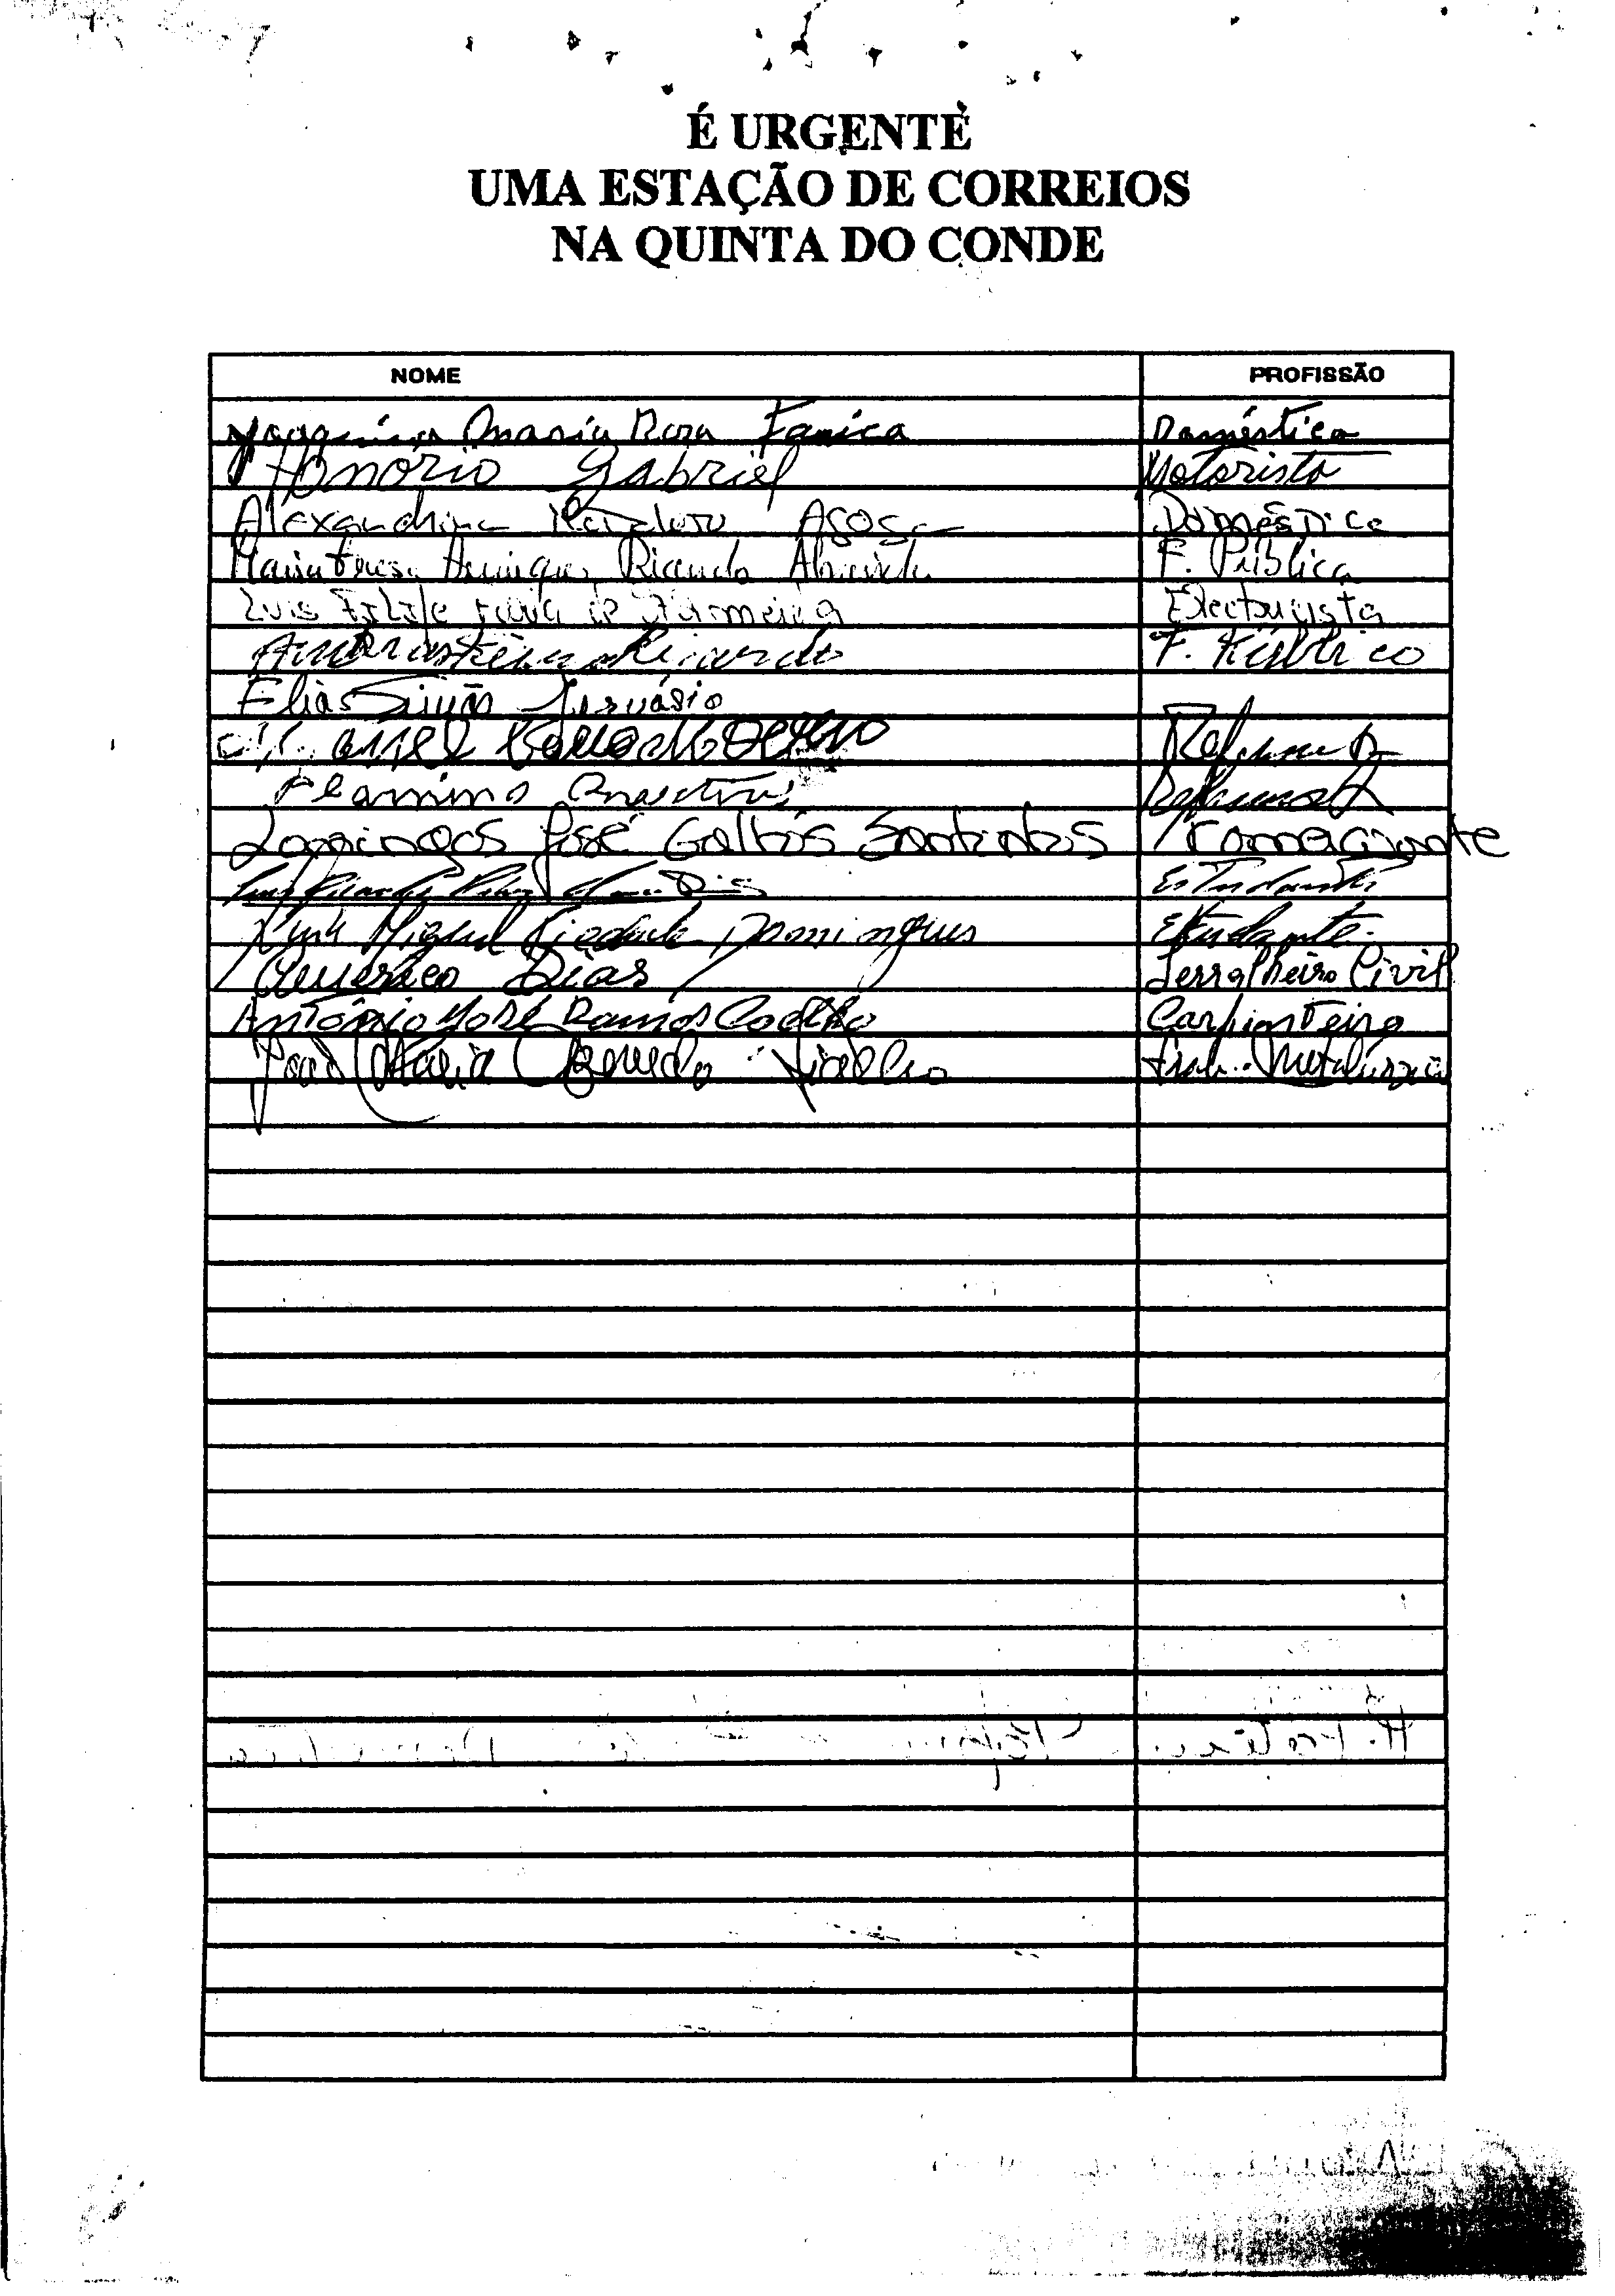 É URGENTE
UMA ESTAÇÃO DE CORREIOS
NA QUINTA DO CONDE
NOME PROFISSÃO
Joaquina Maria Rosa Fanica Doméstica
Honório Gabriel Motorista
Alexandrina Domestica
Maria Teresa Henriques Ricardo Almeida F. Pública
Luis Filipe Electricista
Ricardo F. Público
Elias Simão Gervásio
Manuel Coelho Reformado
Flamino Martins Reformado
Domingos José Galhós Santinhos Comerciante
Luis Ricardo Dias Estudante
Miguel Piedade Domingues Estudante.
Americo Dias Serralheiro Civil
António José Ramos Coelho Carpinteiro
José Maria Azevedo Trab. Metalurgico